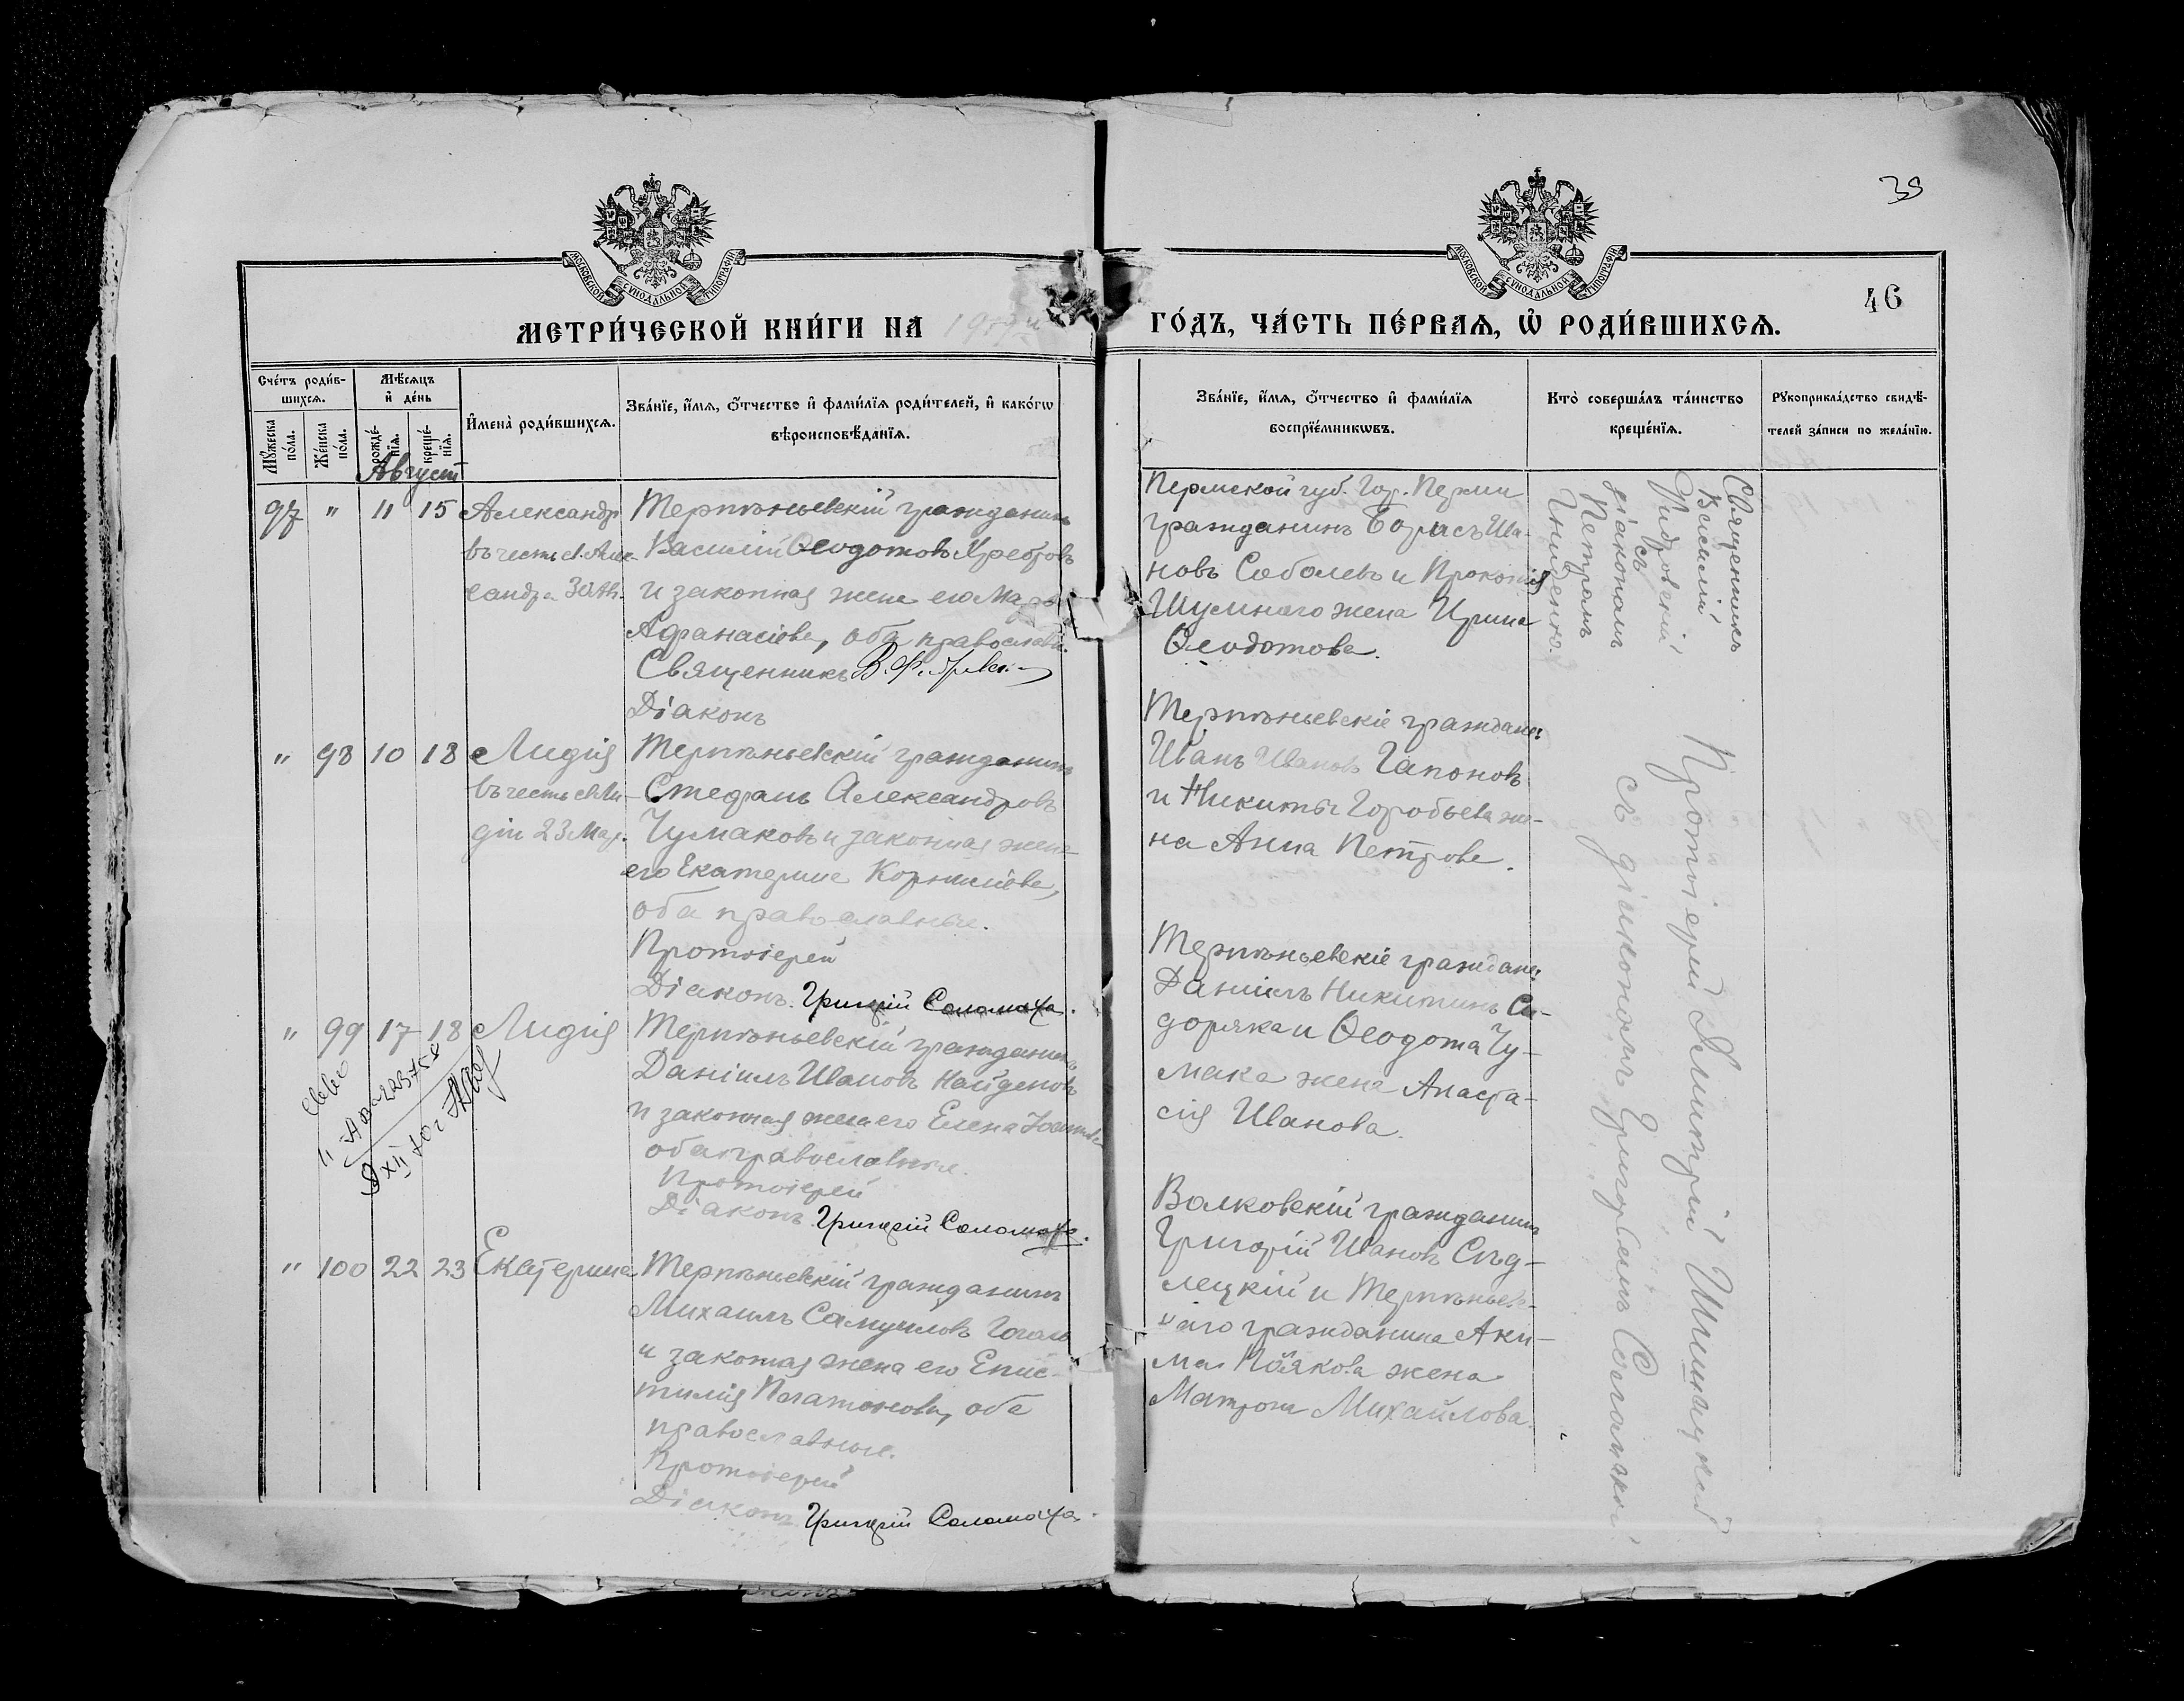 39
46
МОСКОВСКОЙ СѴНОДАЛЬНОЙ ТИПОГРАФІИ
МОСКОВСКОЙ СѴНОДАЛЬНОЙ ТИПОГРАФІИ
МЕТРИ́ЧЕСКОЙ КНИ́ГИ НА
ГО́ДЪ, ЧА́СТЬ ПЕ́РВАѦ, Ѽ РОДИ́ВШИХСѦ.
Сче́тъ роди́в-
шихсѧ.
Мѣ́сѧцъ
и҆ де́нь
Мꙋ́жеска
по́ла.
Же́нска
по́ла.
рожде́-
нїѧ.
креще́-
нїѧ.
И҆мена̀ роди́вшихсѧ.
Зва́нїе, и҆́мѧ, ѻ҆́тчество и҆ фами́лїѧ роди́телей, и҆ како́гѡ
вѣроисповѣ́данїѧ.
Зва́нїе, и҆́мѧ, ѻ҆́тчество и҆ фами́лїѧ
воспрїе́мникѡвъ.
Кто̀ соверша́лъ та́инство
креще́нїѧ.
Рꙋкоприкла́дство свидѣ́-
телей за́писи по жела́нїю.
Август
97 " 11 15 Александр
въ честь св. Алек-
сандра
Терпѣньевскій гражданинъ
Василій Ѳеодотовъ
и законная жена его
Афанасіева, оба православн.
Священникъ
Діаконъ
Пермской губ. Гор. Перми
гражданинъ Борисъ Ива-
новъ Соболевъ и Прокопія
Шумнаго жена Ирина
Ѳеодотова.
Священникъ
Василій
съ
діакономъ
Петромъ
" 98 10 18 Лидія
въ честь св. Ли-
діи 23 Мар.
Терпѣньевскій гражданинъ
Стефанъ Александровъ
Чумаковъ и законная жена
его Екатерина Корниліева,
оба православные.
Протоіерей
Діаконъ. Григорій Соломаха.
Терпѣньевскіе граждане:
Иванъ Ивановъ Гапоновъ
и Никиты Горобьева же-
на Анна Петрова.
Протоіерей Димитрій
съ діакономъ Григоріемъ Соломахой
" 99 17 18 Лидія
Терпѣньевскій гражданинъ
Даніилъ Ивановъ Найденовъ
и законная жена его Елена
оба православные.
Протоіерей
Діаконъ. Григорій Соломаха.
Терпѣньевскіе граждане:
Даніилъ Никитинъ Си-
доряка и Ѳеодота Чу-
мака жена Анаста-
сія Иванова.
" 100 22 23 Екатерина
Терпѣньевскій гражданинъ
Михаилъ Самуиловъ Гоголь
и законная жена его Епис-
тимія Платонова, оба
православные.
Протоіерей
Діаконъ Григорій Соломаха.
Валковскій гражданинъ
Григорій Ивановъ Слѣд-
лецкій и Терпѣньев-
скаго гражданина Аки-
ма жена
Матрона Михайлова.